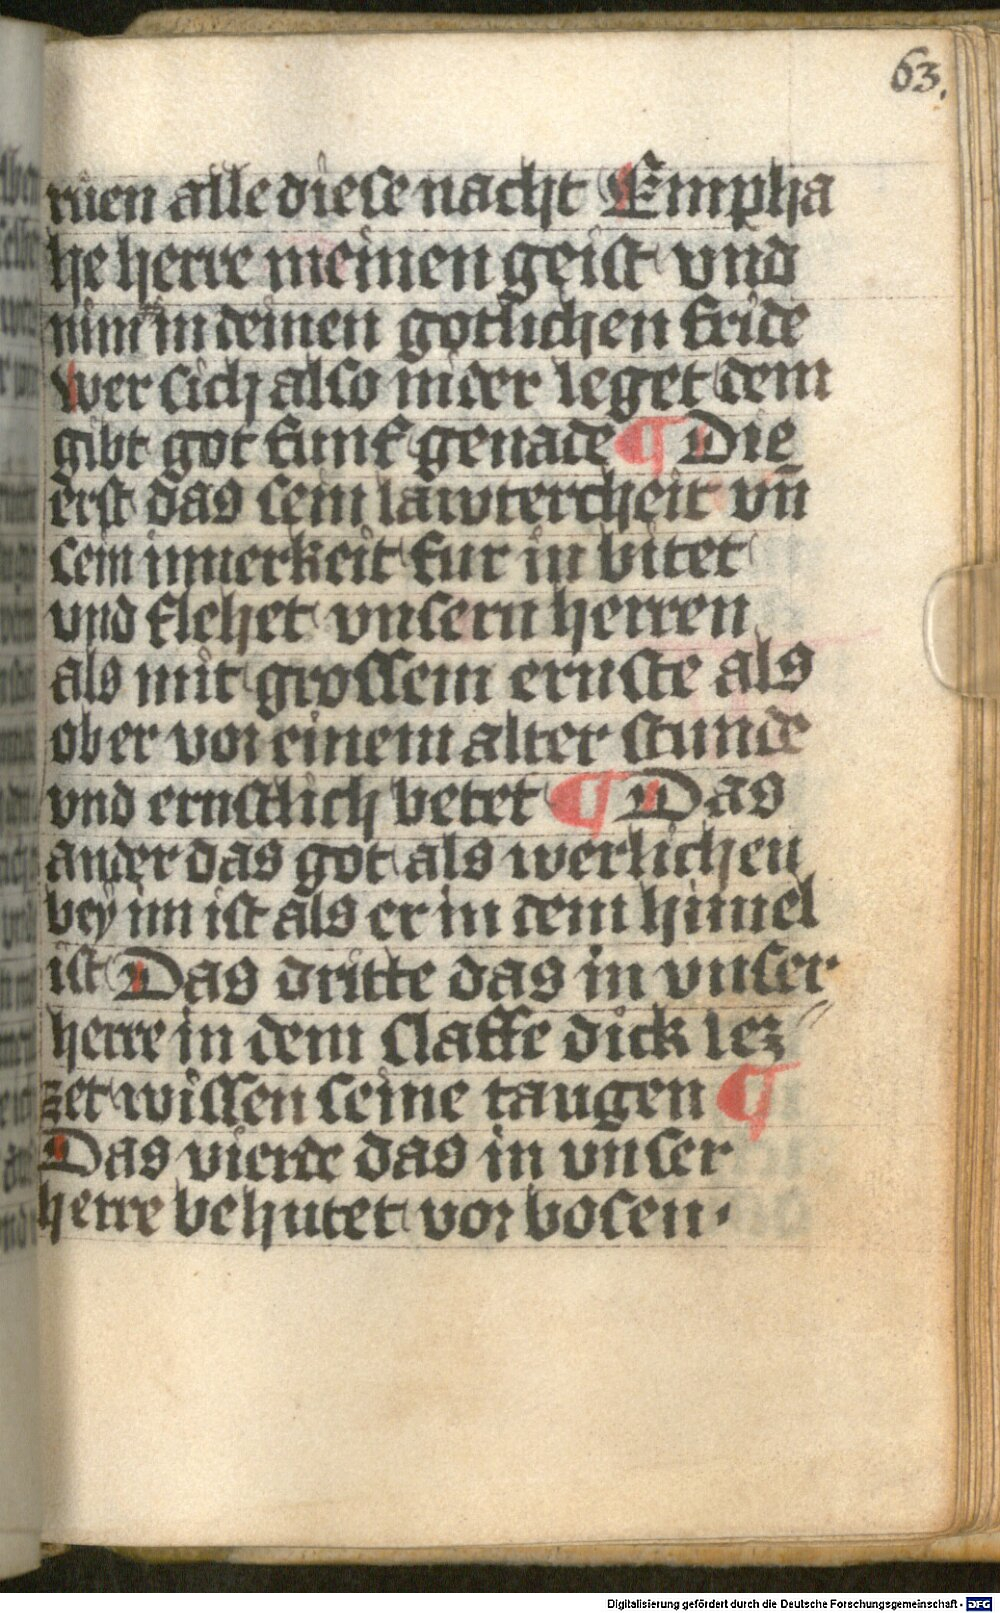 63.
ruen alle diese nacht Empha
he herre meinen geist und
nim in deinen gotlichen fride
wer sich also nider leget dem
gibt got funf genade ¶ Die
erst das sein lawtercheit vn̄
sein innerkeit fur in bitet
vnd flehet vnsern herren
als mit grossem ernste als
ob er vor einem alter stunde
vnd ernstlich betet ¶ Das
ander das got als werlichen
bey im ist als er in dem himel
ist Das dritte das in vnser
herre in dem slaffe dick lez
zet wissen seine taugen ¶
Das vierde das in vnser
herre behutet vor bosen ·
Digitalisierung gefördert durch die Deutsche Forschungsgemeinschaft - DFG